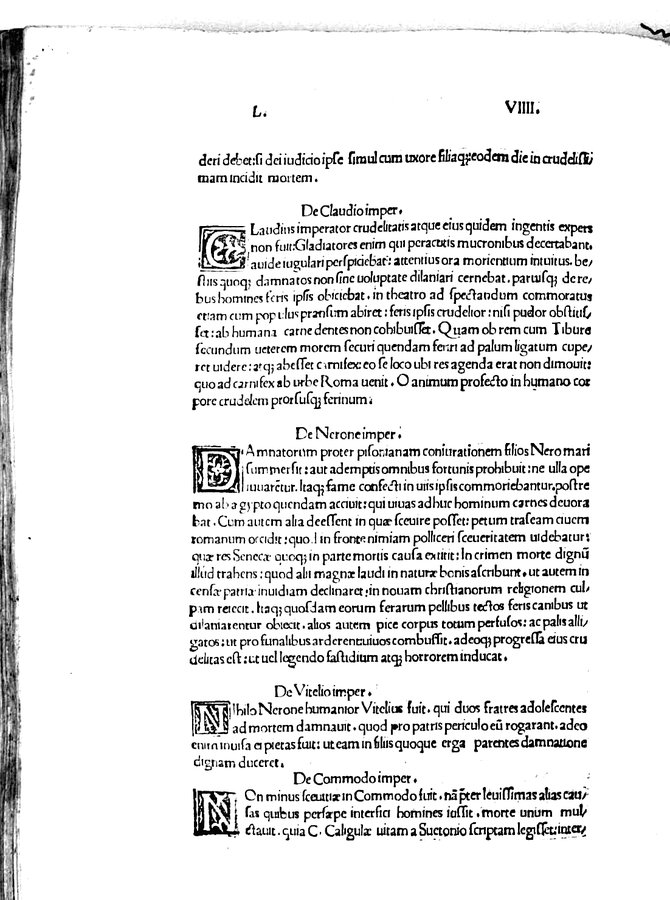 L. VIIII.
deri debet: si dei iudicio ipse simul cum uxore filiaq; eodem die in crudelissi/
mam incidit mortem.
De Claudio imper.
CLaudius imperator crudelitatis atque eius quidem ingentis expers
non fuit: Gladiatores enim qui peracutis mucronibus decertabant,
auide iugulari perspiciebat: attentius ora morientium intuitus. be/
stiis quoq; damnatos non sine uoluptate dilaniari cernebat. paruisq; de re/
bus homines feris ipsis obiciebat. in theatro ad spectandum commoratus
etiam cum populus pransum abiret: feris ipsis crudelior: nisi pudor obstitis/
set: ab humana carne dentes non cohibuisset. Quam ob rem cum Tibure
secundum ueterem morem securi quendam feriri ad palum ligatum cupe/
ret uidere: atq; abesset carnifex: eo se loco ubi res agenda erat non dimouit:
quo ad carnifex ab urbe Roma uenit. O animum profecto in humano cor
pore crudelem prorsusq; ferinum.
De Nerone imper.
DAmnatorum propter pisonianam coniurationem filios Nero mari
summersit: aut ademptis omnibus fortunis prohibuit: ne ulla ope
iuuarētur. Itaq; fame confecti in uiis ipsis commoriebantur. postre
mo ab ægypto quendam acciuit: qui uiuas adhuc hominum carnes deuora
bat. Cum autem alia deessent in quæ sæuire posset: petum traseam ciuem
romanum occidit: quod in fronte nimiam polliceri seueritatem uidebatur:
quæ res Senecæ quoq; in parte mortis causa extitit: In crimen morte dignū
illud trahens: quod alii magnæ laudi in naturæ bonis ascribunt. ut autem in
censæ patriæ inuidiam declinaret: in nouam christianorum religionem cul/
pam reiecit. Itaq; quosdam eorum ferarum pellibus tectos feris canibus ut
dilaniarentur obiecit. alios autem pice corpus totum perfusos: ac palis alli/
gatos: ut pro funalibus arderent uiuos combussit. adeoq; progressa eius cru
delitas est: ut uel legendo fastidium atq; horrorem inducat.
De Vitelio imper.
NIhilo Nerone humanior Vitelius fuit. qui duos fratres adolescentes
ad mortem damnauit. quod pro patris periculo eū rogarant. adeo
enim inuisa ei pietas fuit: ut eam in filiis quoque erga parentes damnatione
dignam duceret.
De Commodo imper.
NOn minus sæuitiæ in Commodo fuit. nā p̄ter leuissimas alias cau/
sas quibus persæpe interfici homines iussit. morte unum mul/
ctauit. quia C. Caligulæ uitam a Suetonio scriptam legisset: inter/